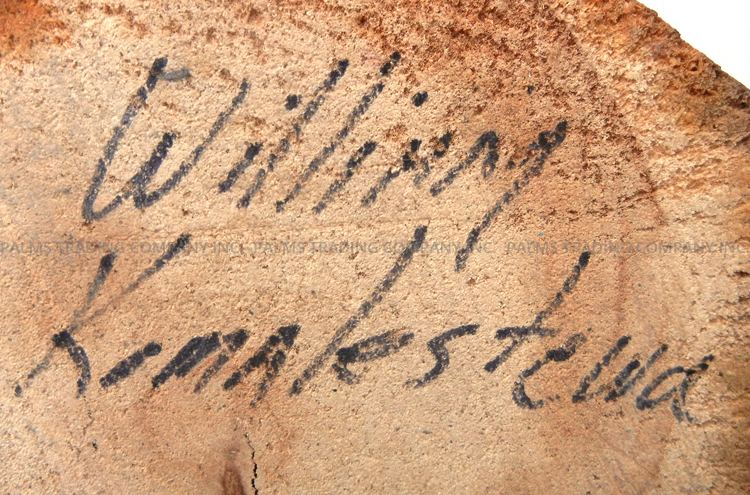 Willing
PALMS TRADING COMPANY INC. PALMS TRADING COMPANY INC. PALMS TRADING COMPANY INC